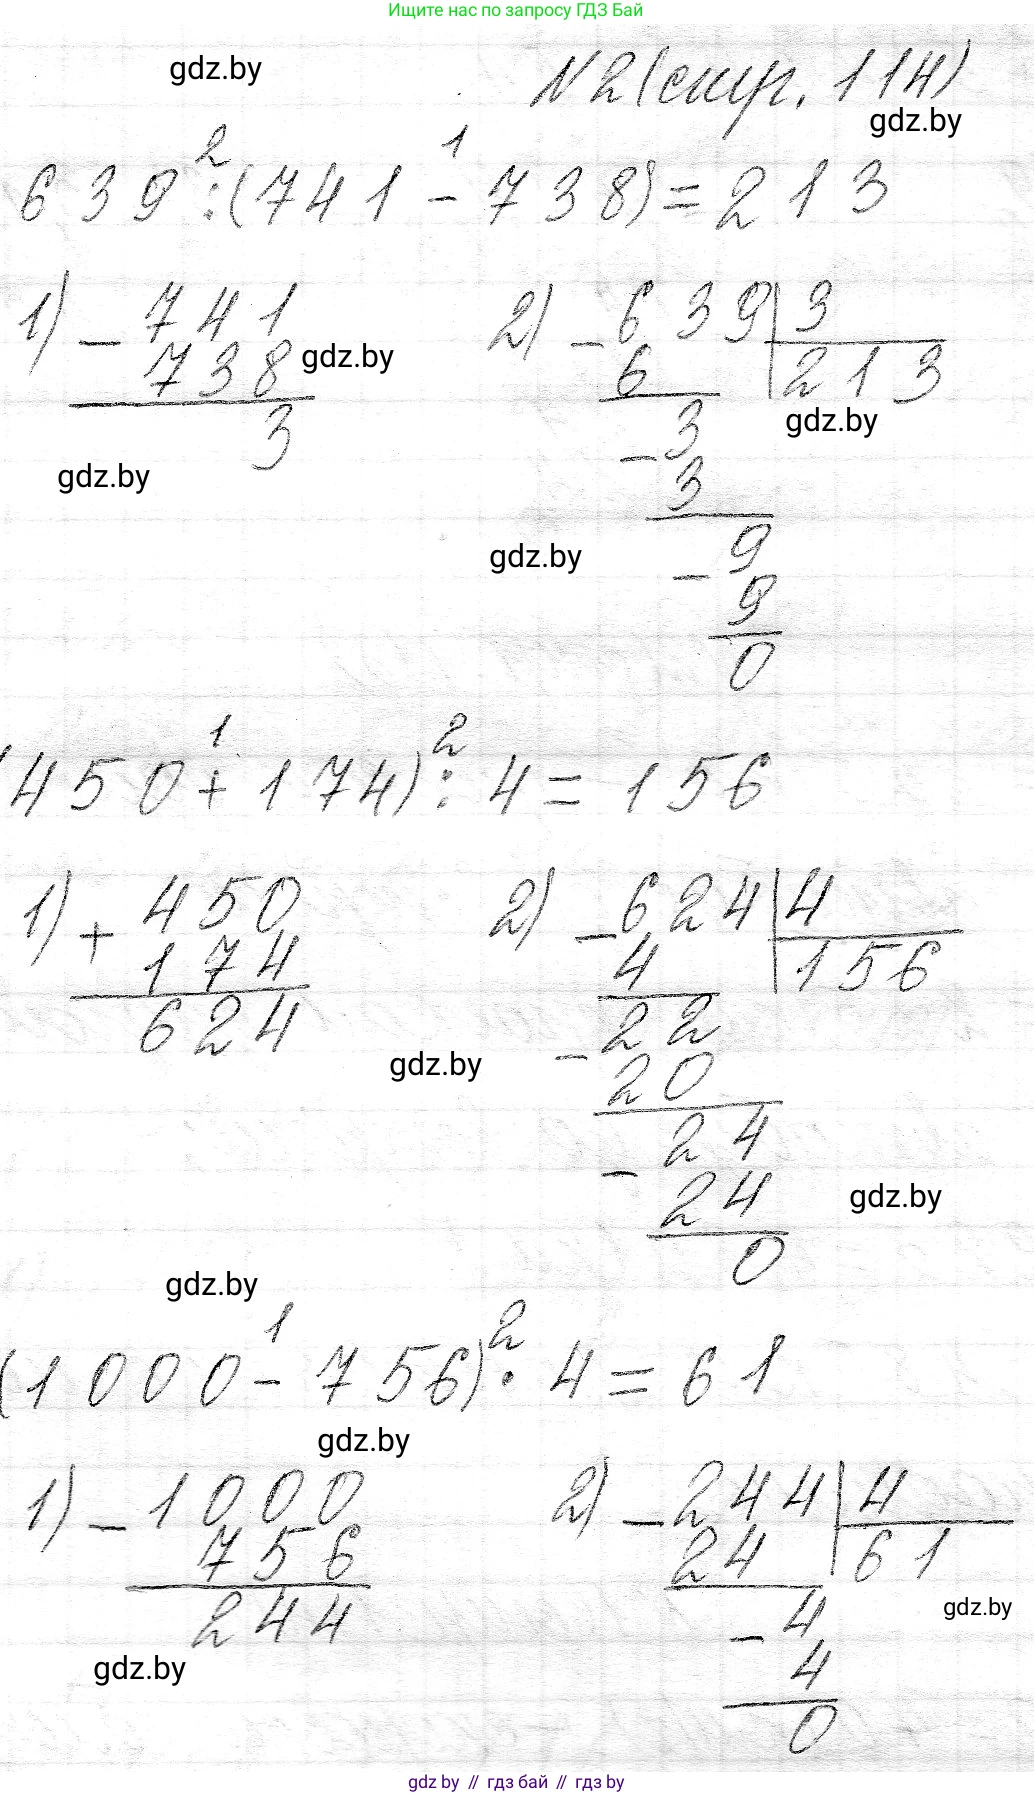 Ищите нас по запросу ГДЗ Бай
gdz.by
№2 (стр. 114)
gdz.by
2 1
639 : (741 - 738) = 213
1) - 741 2) - 639 | 3
738 6 213
gdz.by
3 - 3
gdz.by
gdz.by
3
gdz.by
- 9
9
0
1 2
(450 + 174) : 4 = 156
1) + 450 2) - 624 | 4
174 4 156
624 - 22
gdz.by
20
- 24
24
gdz.by
0
gdz.by
1 2
(1000 - 756) · 4 = 61
gdz.by
1) - 1000 2) - 244 | 4
756 24 61
244 - 4
gdz.by
4
gdz.by
0
gdz by // гдз бай // gdz by